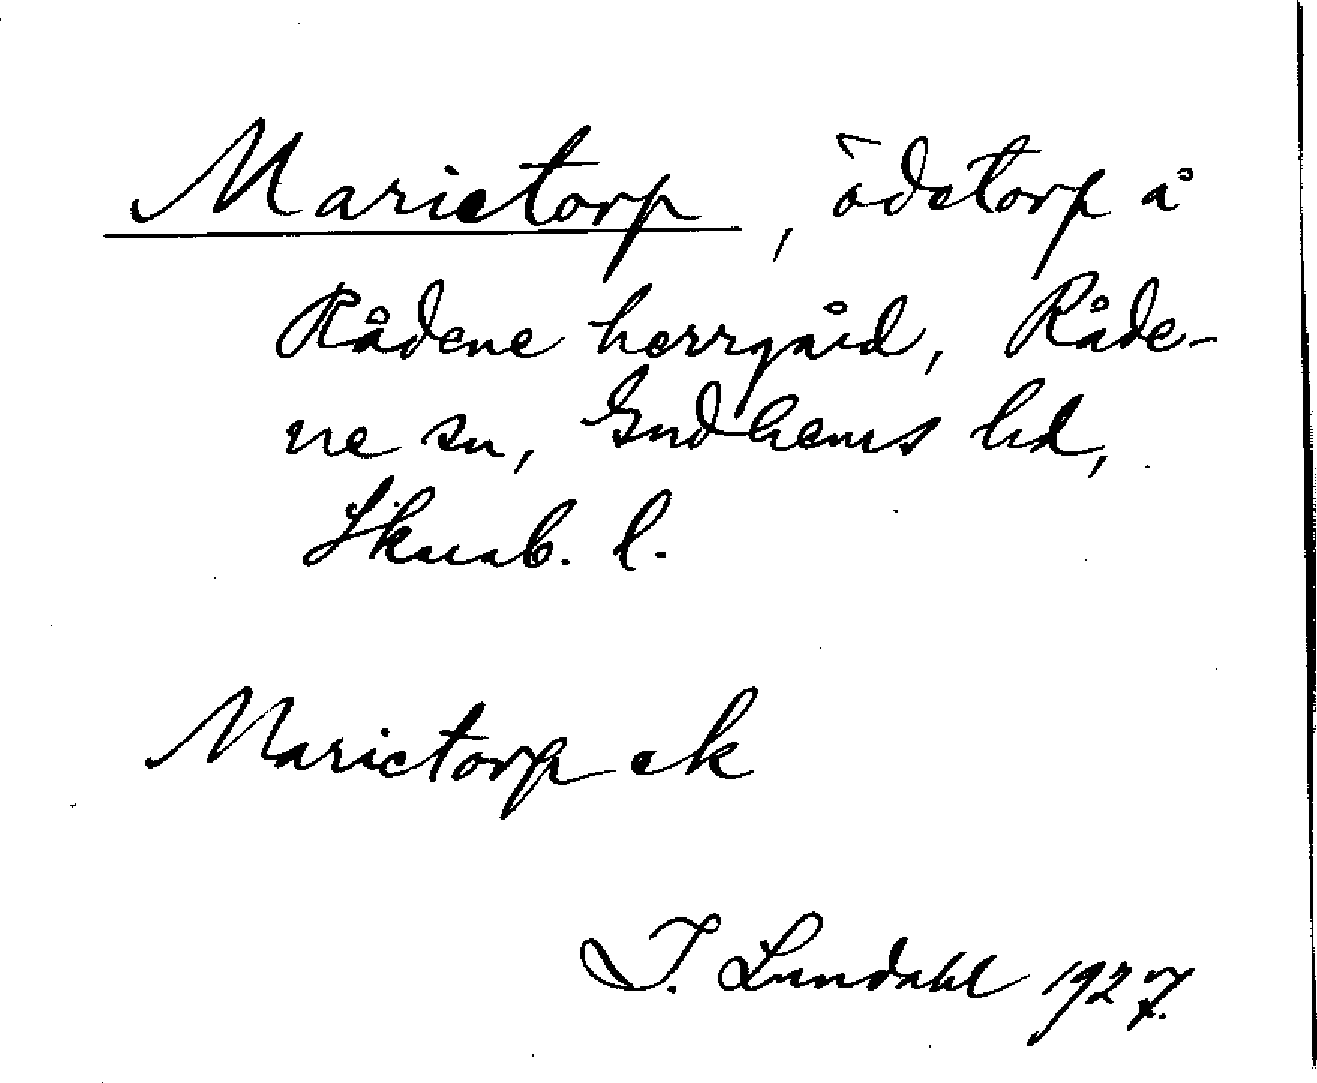 Marietorp, ödetorp å
Rådene herrgård, Råde-
ne sn, Gudhems hd,
Skarab. l.
Marietorp ek
I. Lundahl 1927.